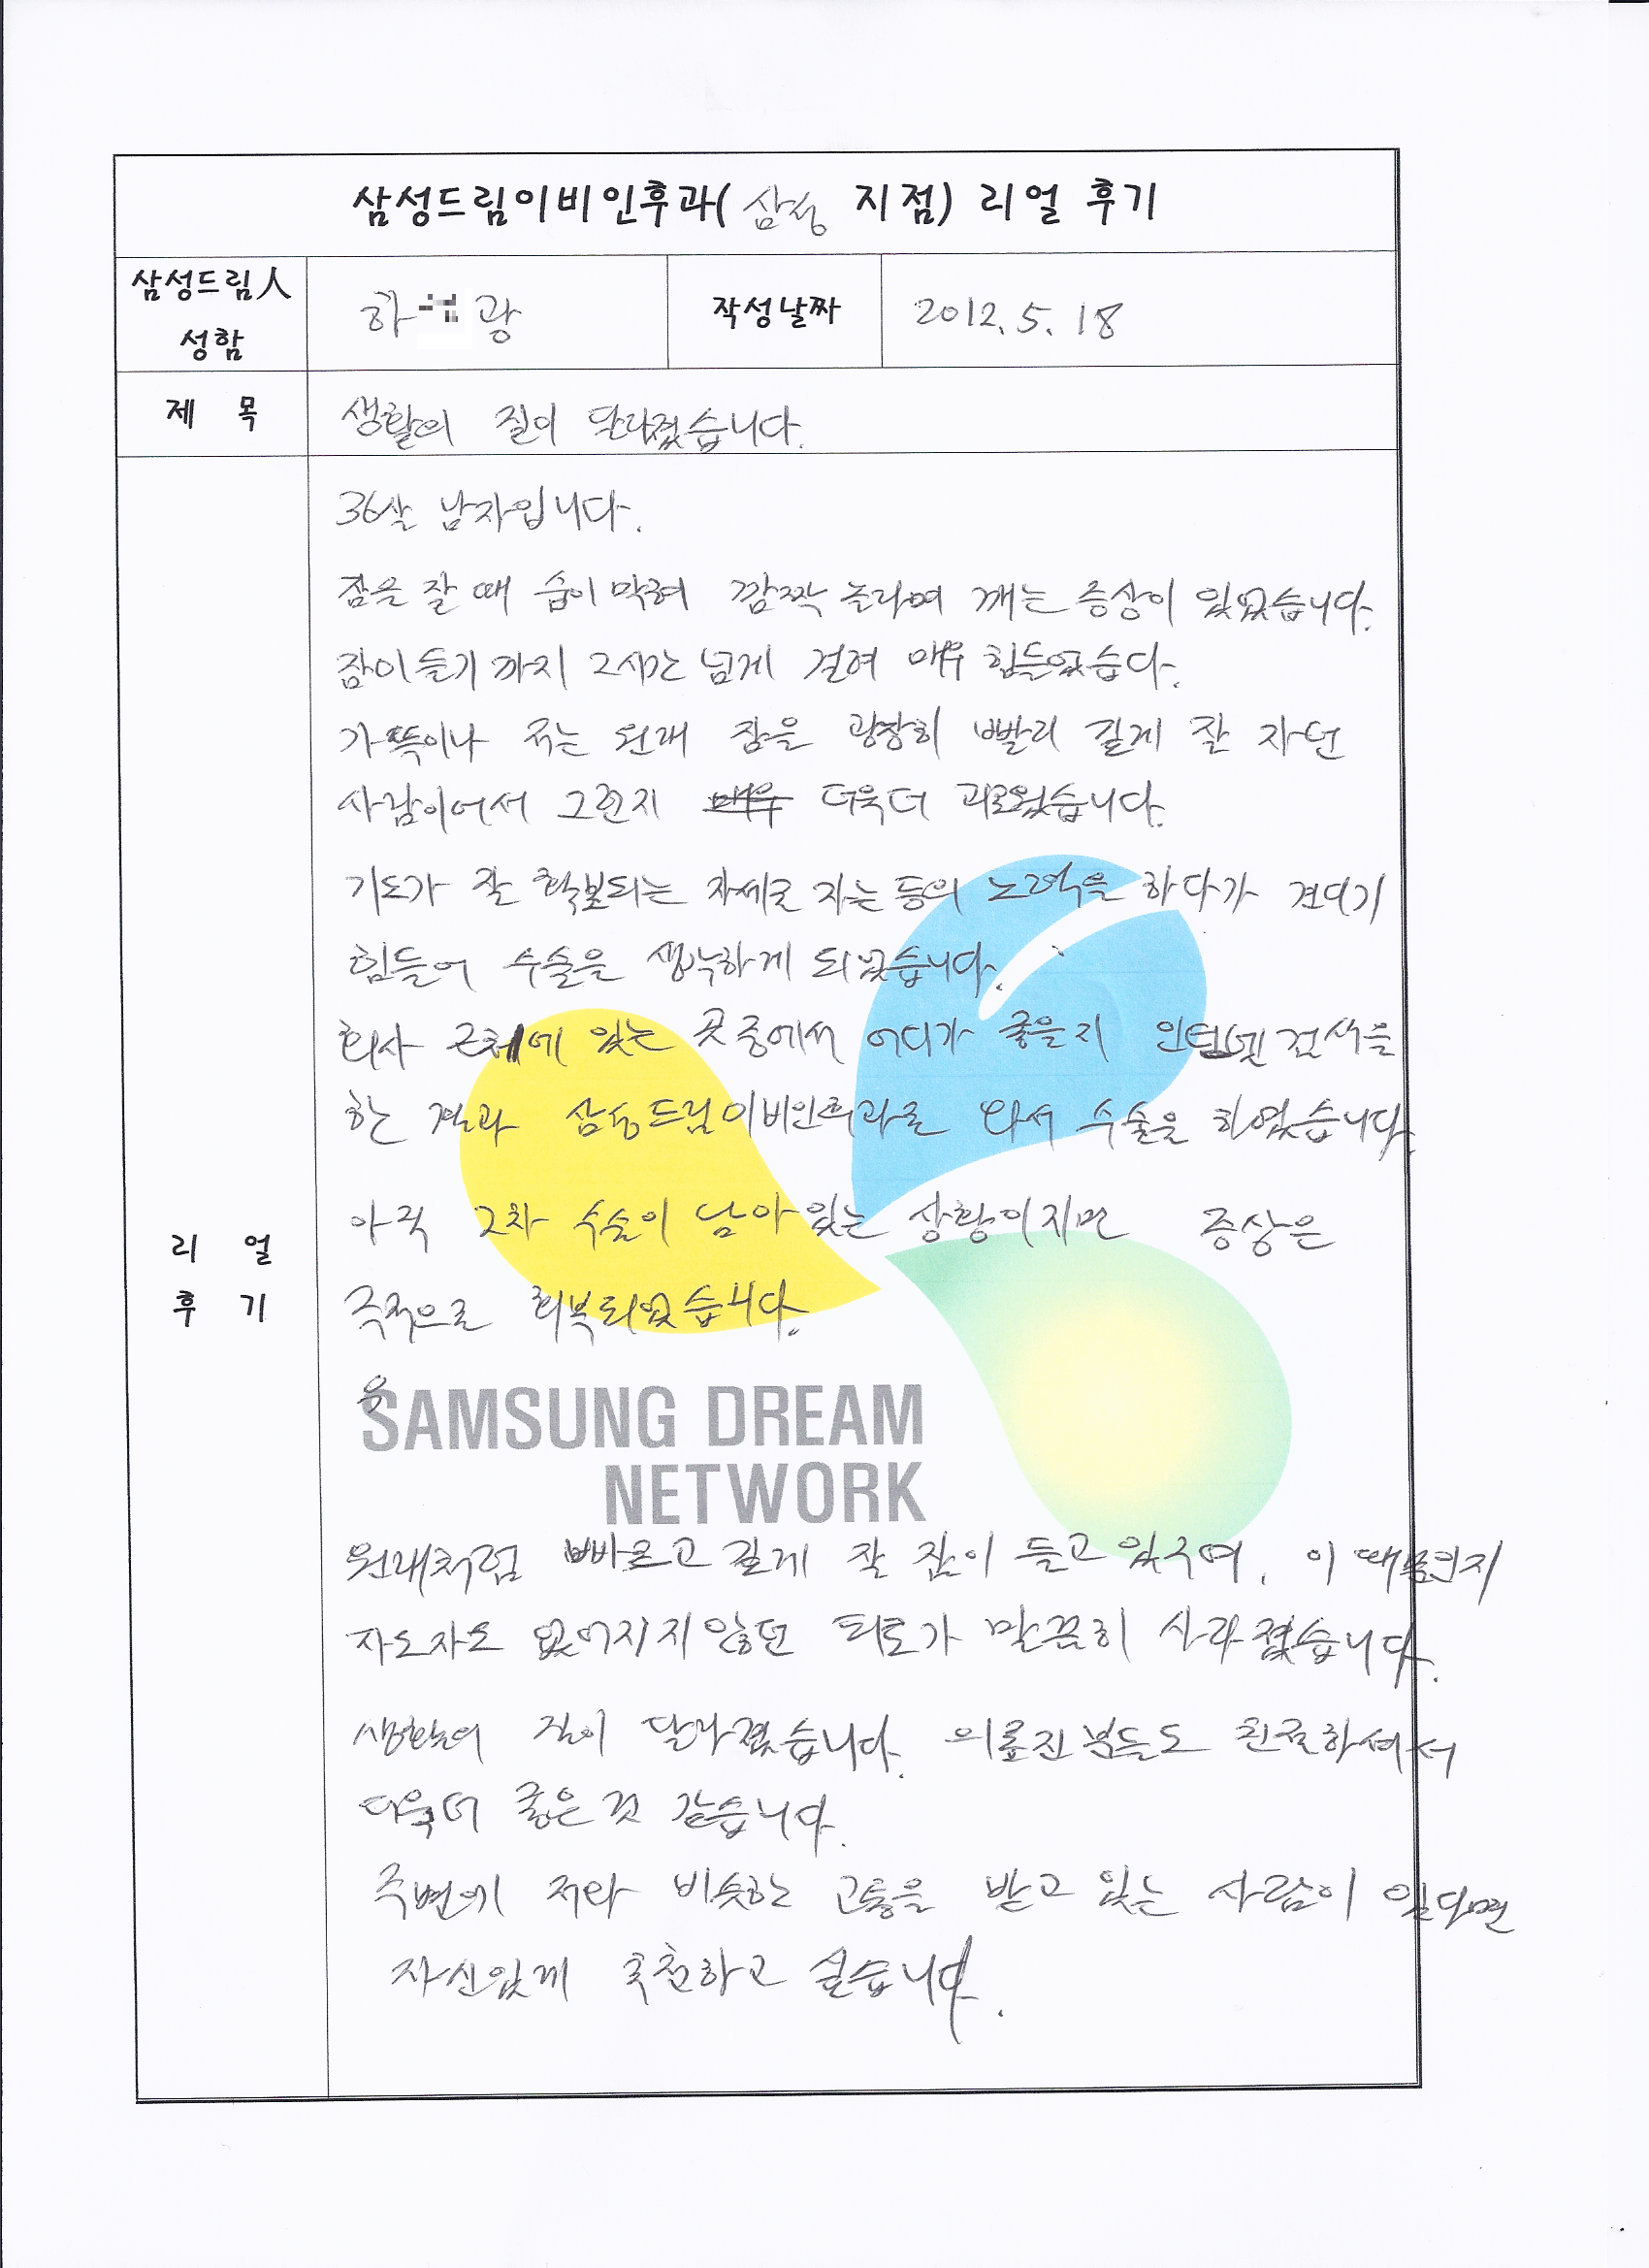 삼성드림이비인후과(삼성 지점) 리얼 후기
삼성드림人
성함
하 광
작성날짜
2012. 5. 18
제 목
생활의 질이 달라졌습니다.
36살 남자입니다.
잠을 잘 때 숨이 막혀 깜짝 놀라며 깨는 증상이 있었습니다.
잠이 들기 까지 2시간 넘게 걸려 매우 힘들었습다.
가뜩이나 저는 원래 잠을 굉장히 빨리 깊게 잘 자던
사람이어서 그런지 더욱더 괴로웠습니다.
기도가 잘 확보되는 자세로 자는 등의 노력을 하다가 견디기
힘들어 수술을 생각하게 되었습니다.
회사 근처에 있는 곳 중에서 어디가 좋을지 인터넷 검색을
한 결과 삼성드림이비인후과로 와서 수술을 하였습니다.
아직 2차 수술이 남아 있는 상황이지만 증상은
극적으로 회복되었습니다.
SAMSUNG DREAM
NETWORK
리 얼
후 기
원래처럼 빠르고 깊게 잘 잠이 들고 있구며, 이 때문인지
자도자도 없어지지않던 피로가 말끔히 사라졌습니다.
생활의 질이 달라졌습니다. 의료진분들도 친절하셔서
더욱더 좋은것 같습니다.
주변에 저와 비슷한 고통을 받고 있는 사람이 있다면
자신있게 추천하고 싶습니다.